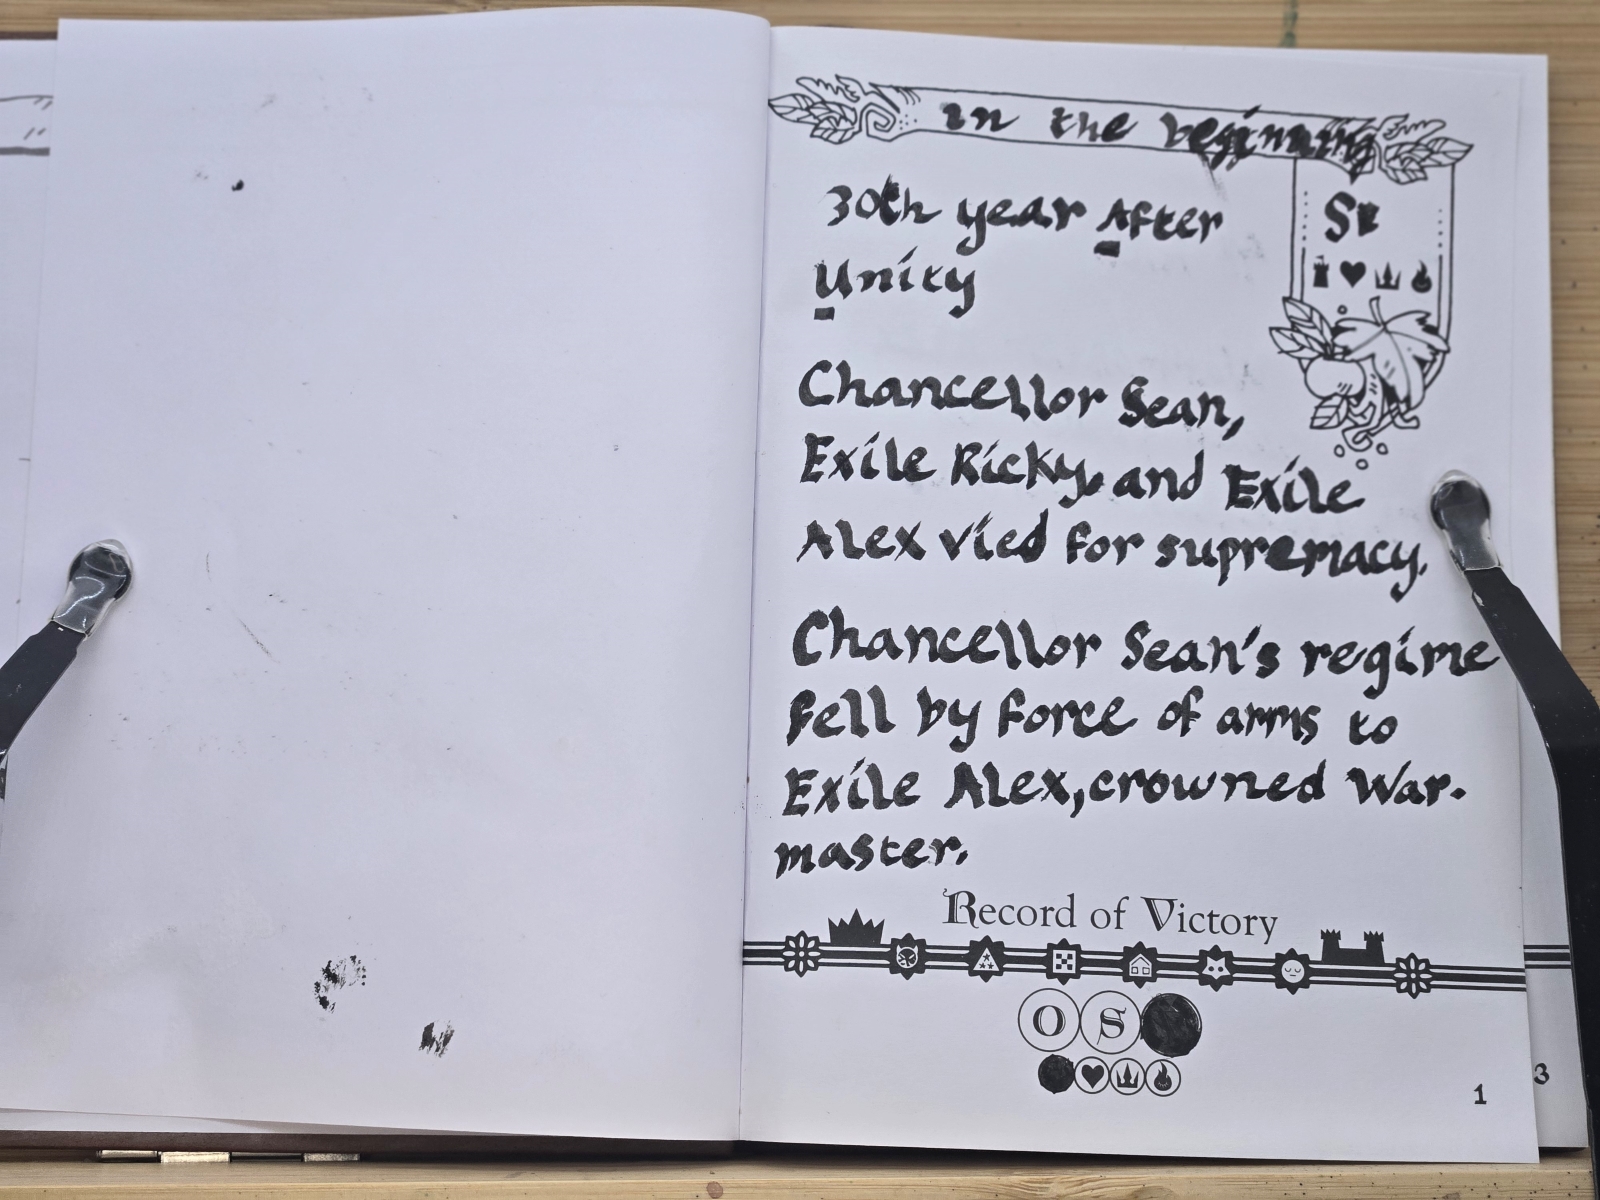 in the beginning
30th year After
Unity
Chancellor Sean,
Exile Ricky, and Exile
Alex vied for supremacy.
Chancellor Sean's regime
fell by force of arms to
Exile Alex, crowned War-
master.
Record of Victory
O S
1
3